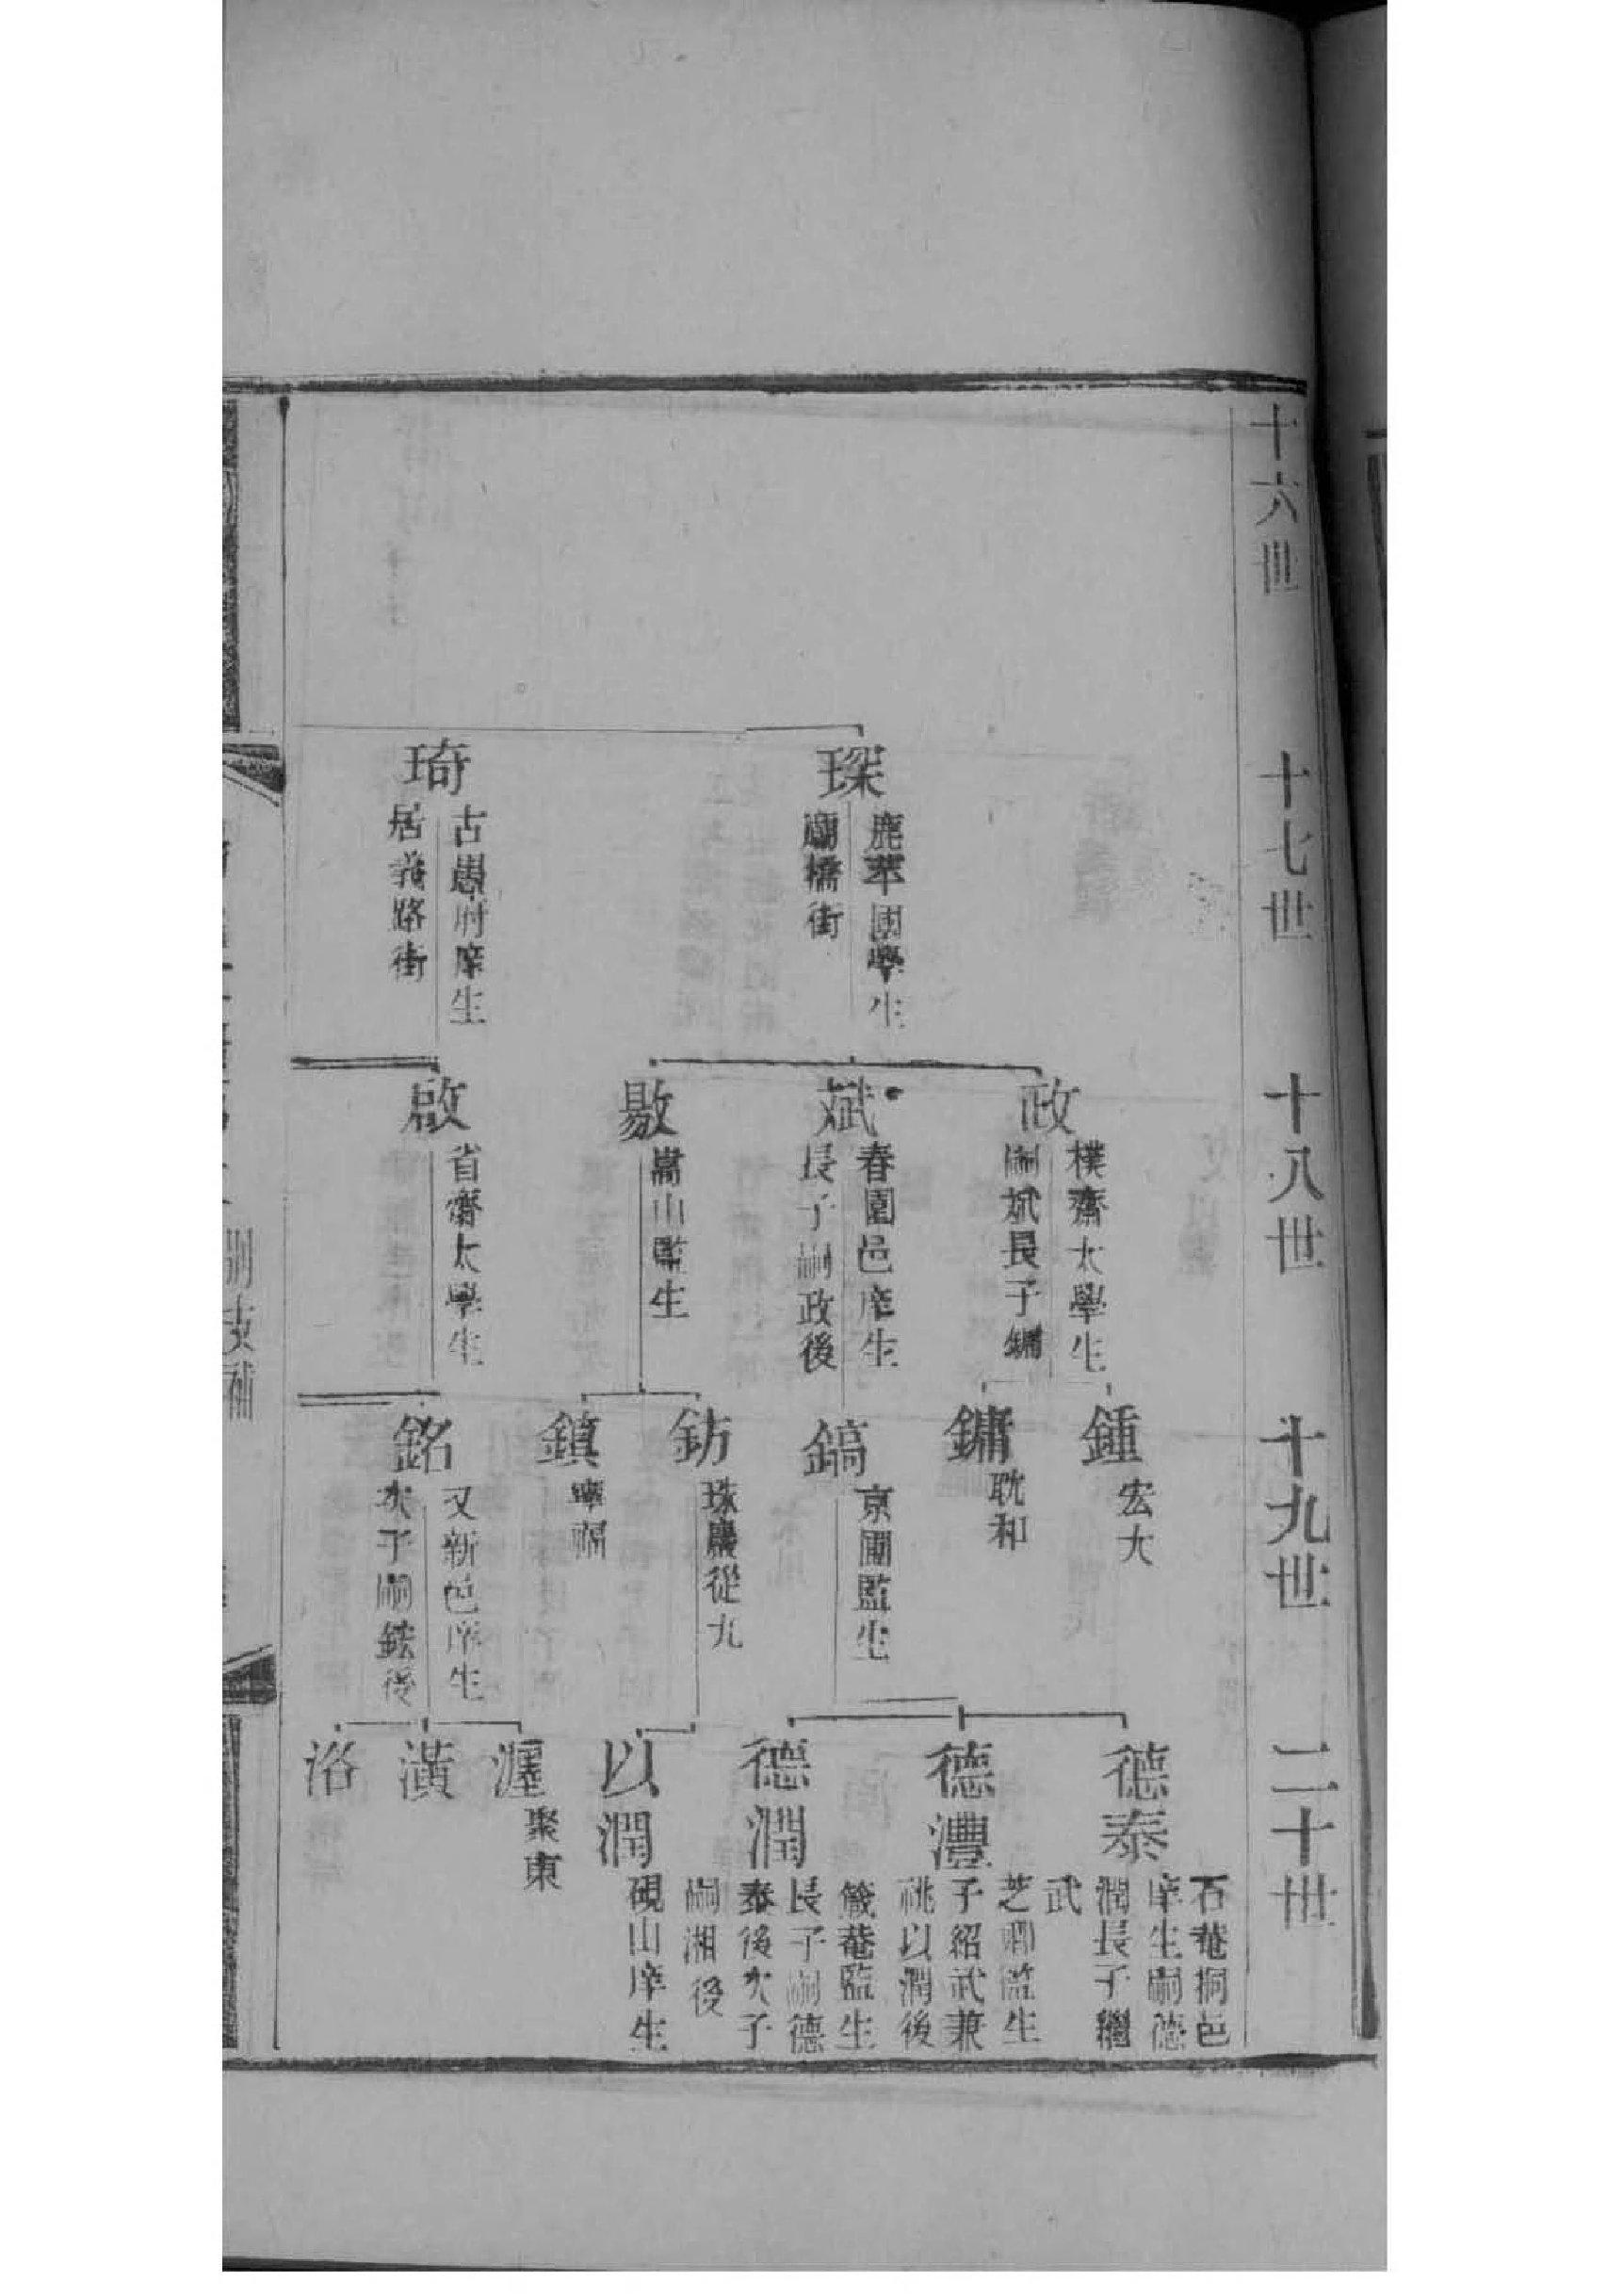 十六世
十七世
十八世
十九世
二十世
琛
鹿苹國學生
廟橋街
琦
古愚府庠生
居義路街
政
樸齋太學生
嗣斌長子鏞
斌
春園邑庠生
長子嗣政後
敭
嵩山監生
啟
省齋太學生
鍾
宏大
鏞
耽和
鎬
京圃監生
鈁
珠巖從九
鎮
寧福
銘
又新邑庠生
次子嗣鉉後
德泰
石菴桐邑
庠生嗣德
潤長子繼
武
德灃
芝卿監生
子紹武兼
祧以潤後
德潤
箴菴監生
長子嗣德
泰後次子
嗣湘後
以潤
硯山庠生
渥
聚東
潢
洛